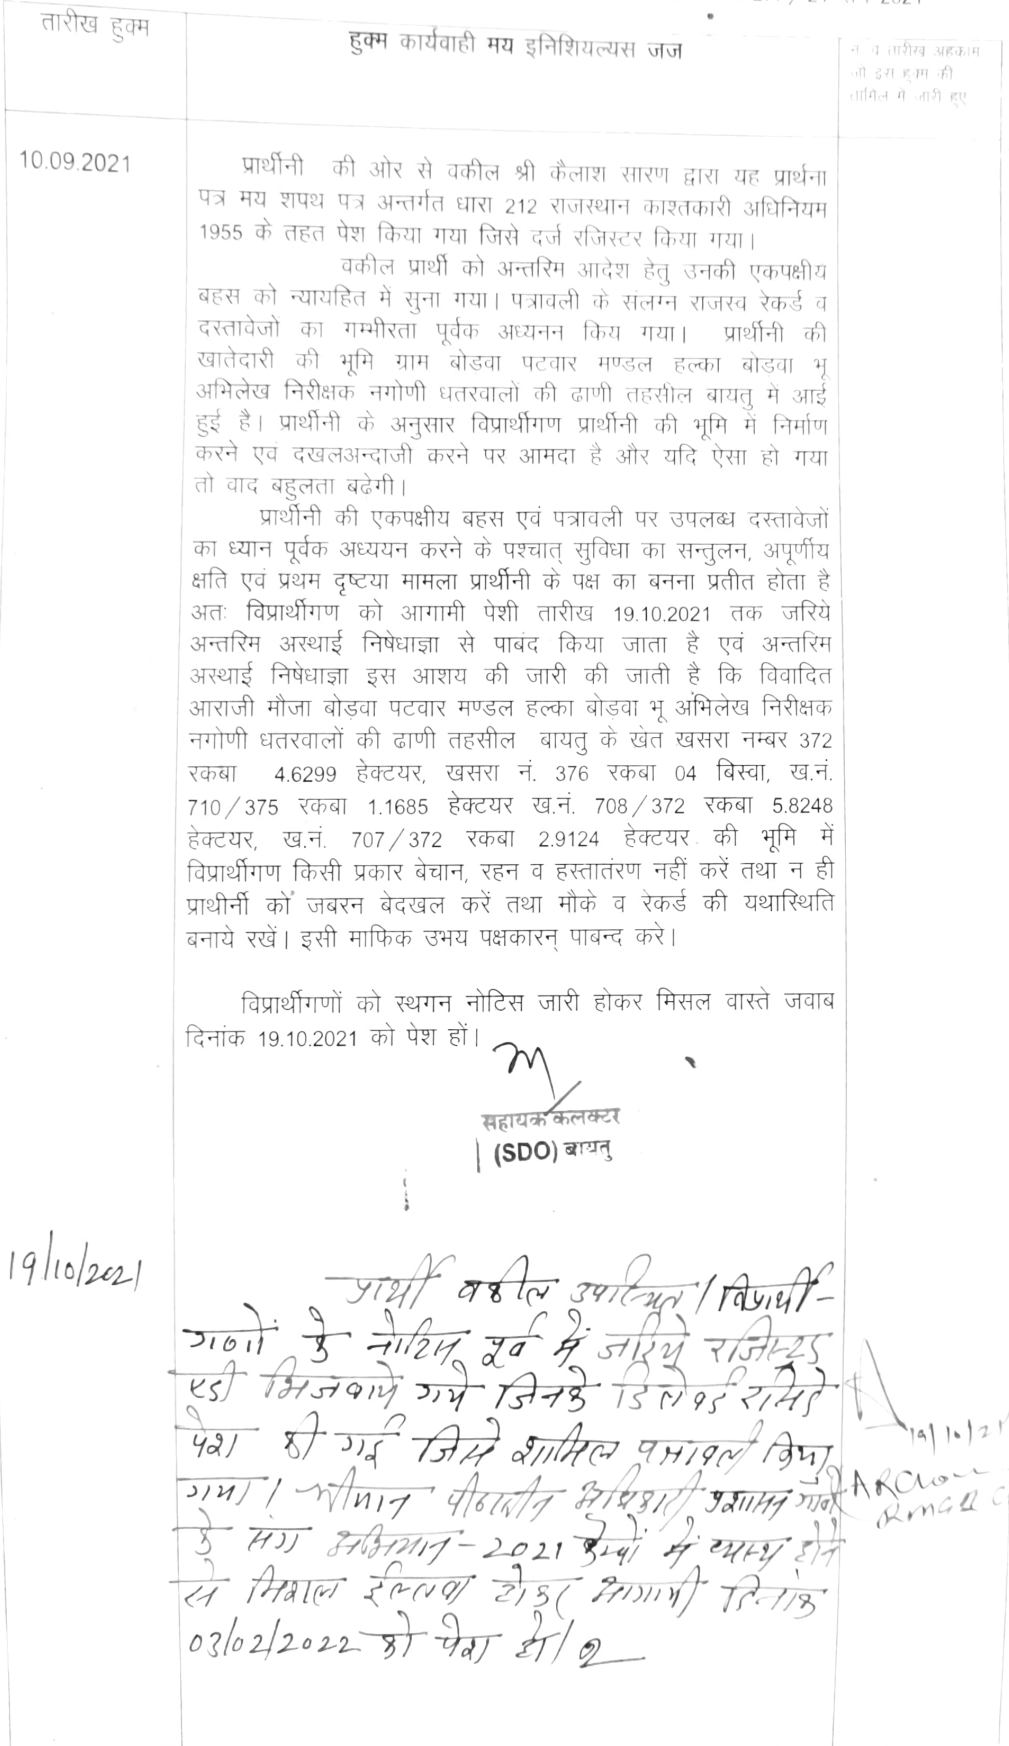 तारीख हुक्म
हुक्म कार्यवाही मय इनिशियल्यस जज
न व तारीख अहकाम
जो इस हुक्म की
तामिल में जारी हुए
10.09.2021
प्रार्थीनी की ओर से वकील श्री कैलाश सारण द्वारा यह प्रार्थना
पत्र मय शपथ पत्र अन्तर्गत धारा 212 राजस्थान काश्तकारी अधिनियम
1955 के तहत पेश किया गया जिसे दर्ज रजिस्टर किया गया।
वकील प्रार्थी को अन्तरिम आदेश हेतु उनकी एकपक्षीय
बहस को न्यायहित में सुना गया। पत्रावली के संलग्न राजस्व रेकर्ड व
दस्तावेजों का गम्भीरता पूर्वक अध्यनन किय गया। प्रार्थीनी की
खातेदारी की भूमि ग्राम बोडवा पटवार मण्डल हल्का बोडवा भू
अभिलेख निरीक्षक नगोणी धतरवालों की ढाणी तहसील बायतु में आई
हुई है। प्रार्थीनी के अनुसार विप्रार्थीगण प्रार्थीनी की भूमि में निर्माण
करने एवं दखलअन्दाजी करने पर आमदा है और यदि ऐसा हो गया
तो वाद बहुलता बढेगी।
प्रार्थीनी की एकपक्षीय बहस एवं पत्रावली पर उपलब्ध दस्तावेजों
का ध्यान पूर्वक अध्ययन करने के पश्चात् सुविधा का सन्तुलन, अपूर्णीय
क्षति एवं प्रथम दृष्टया मामला प्रार्थीनी के पक्ष का बनना प्रतीत होता है
अतः विप्रार्थीगण को आगामी पेशी तारीख 19.10.2021 तक जरिये
अन्तरिम अस्थाई निषेधाज्ञा से पाबंद किया जाता है एवं अन्तरिम
अस्थाई निषेधाज्ञा इस आशय की जारी की जाती है कि विवादित
आराजी मौजा बोड़वा पटवार मण्डल हल्का बोड़वा भू अभिलेख निरीक्षक
नगोणी धतरवालों की ढाणी तहसील बायतु के खेत खसरा नम्बर 372
रकबा 4.6299 हेक्टयर, खसरा नं. 376 रकबा 04 बिस्वा, ख.नं.
710/375 रकबा 1.1685 हेक्टयर ख.नं. 708/372 रकबा 5.8248
हेक्टयर, ख.नं. 707/372 रकबा 2.9124 हेक्टयर की भूमि में
विप्रार्थीगण किसी प्रकार बेचान, रहन व हस्तातंरण नहीं करें तथा न ही
प्राथीर्नी को जबरन बेदखल करें तथा मौके व रेकर्ड की यथास्थिति
बनाये रखें। इसी माफिक उभय पक्षकारन् पाबन्द करे।
विप्रार्थीगणों को स्थगन नोटिस जारी होकर मिसल वास्ते जवाब
दिनांक 19.10.2021 को पेश हों।
सहायक कलक्टर
(SDO) बायतु
19/10/2021
प्रार्थी वकील उपस्थित। विप्रार्थी-
गणों के नोटिस पूर्व में जरिये रजिस्टर्ड
एडी भिजवाये गये जिनके डिलेवर्ड रसिदे
पेश की गई जिसे शामिल पत्रावली किया
गया। श्रीमान पीठासीन अधिकारी प्रशासन गांवों
के संग अभियान-2021 केम्पों में व्यस्थ होने
से मिशल ईल्तवा होकर आगामी दिनांक
03/02/2022 को पेश हो।
19/10/21